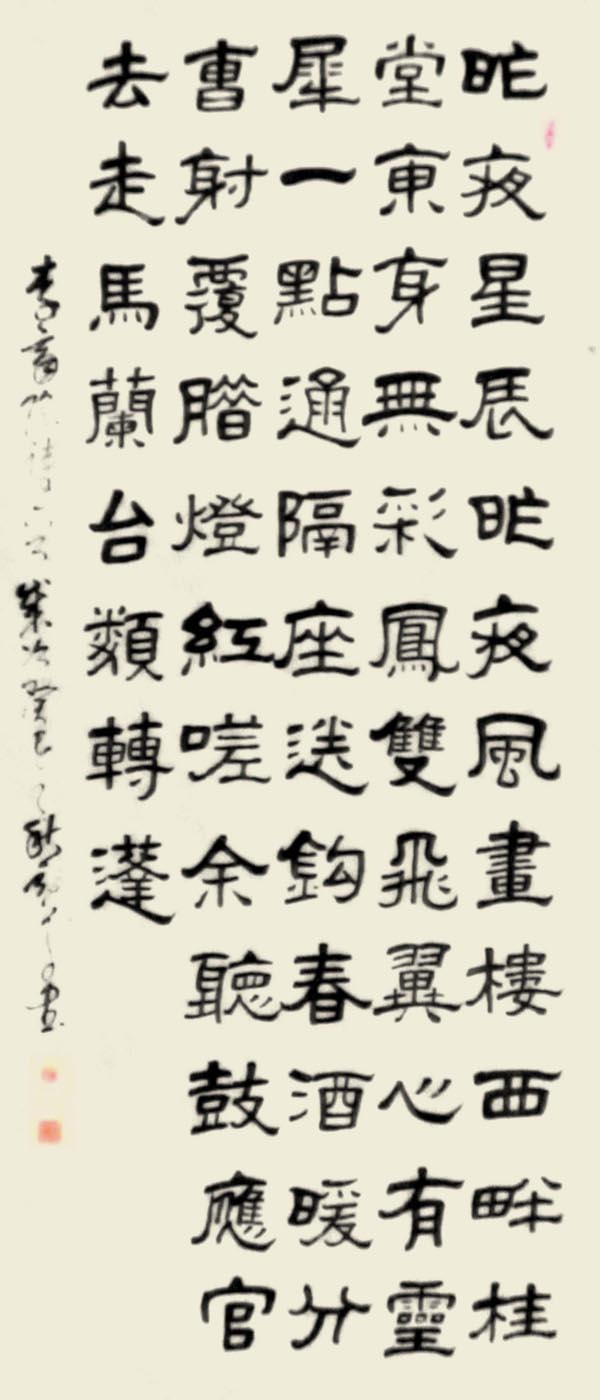 昨夜星辰昨夜風畫樓西畔桂
堂東身無彩鳳雙飛翼心有靈
犀一點通隔座送鈎春酒暖分
曹射覆腊燈紅嗟余聽鼓應官
去走馬蘭台類轉蓬
李商隐詩 歲次癸巳之秋 書